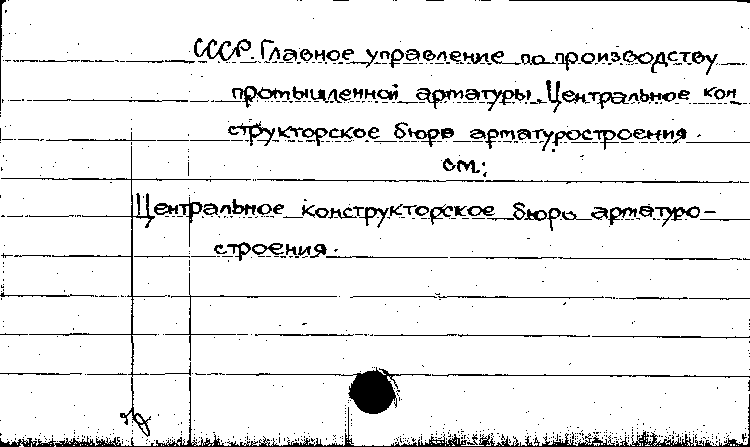 СССР. Главное управление по производству
промышленной арматуры. Центральное кон
структорское бюро арматуростроения.
см.:
Центральное конструкторское бюро арматуро-
строения.